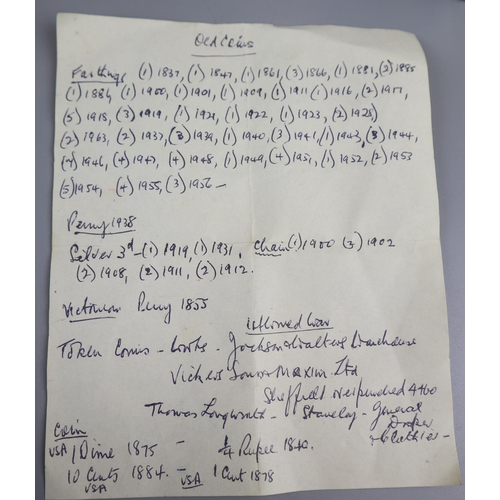 Old Coins
Farthings (1) 1837, (1) 1847, (1) 1861, (3) 1866, (1) 1881, (2) 1885
(1) 1886 (1) 1900, (1) 1901, (1) 1909, (1) 1911 (1) 1916, (2) 1917,
(5) 1918, (3) 1919, (1) 1921, (1) 1922, (1) 1923, (2) 1925)
(2) 1963, (2) 1937, (3) 1939, (1) 1940, (3) 1941, (1) 1943, (3) 1944,
(4) 1946, (4) 1947, (4) 1948, (1) 1949, (4) 1951, (1) 1952, (2) 1953
(5) 1954, (4) 1955, (3) 1956 –
Penny 1938
Silver 3d – (1) 1919, (1) 1931, Chain (1) 1900 (3) 1902
(2) 1908, (2) 1911, (2) 1912.
Victorian Penny 1855
Token Coins – Works – Jackson Walters Warehouse
Vickers Sons & Maxim Ltd
Sheffield 4460
Thomas Longworth – Staveley – General
Draper
& Clothier –
Coin
USA 1 Dime 1875 – 1/4 Rupee 1840.
10 Cents 1884 – USA 1 Cent 1878
USA